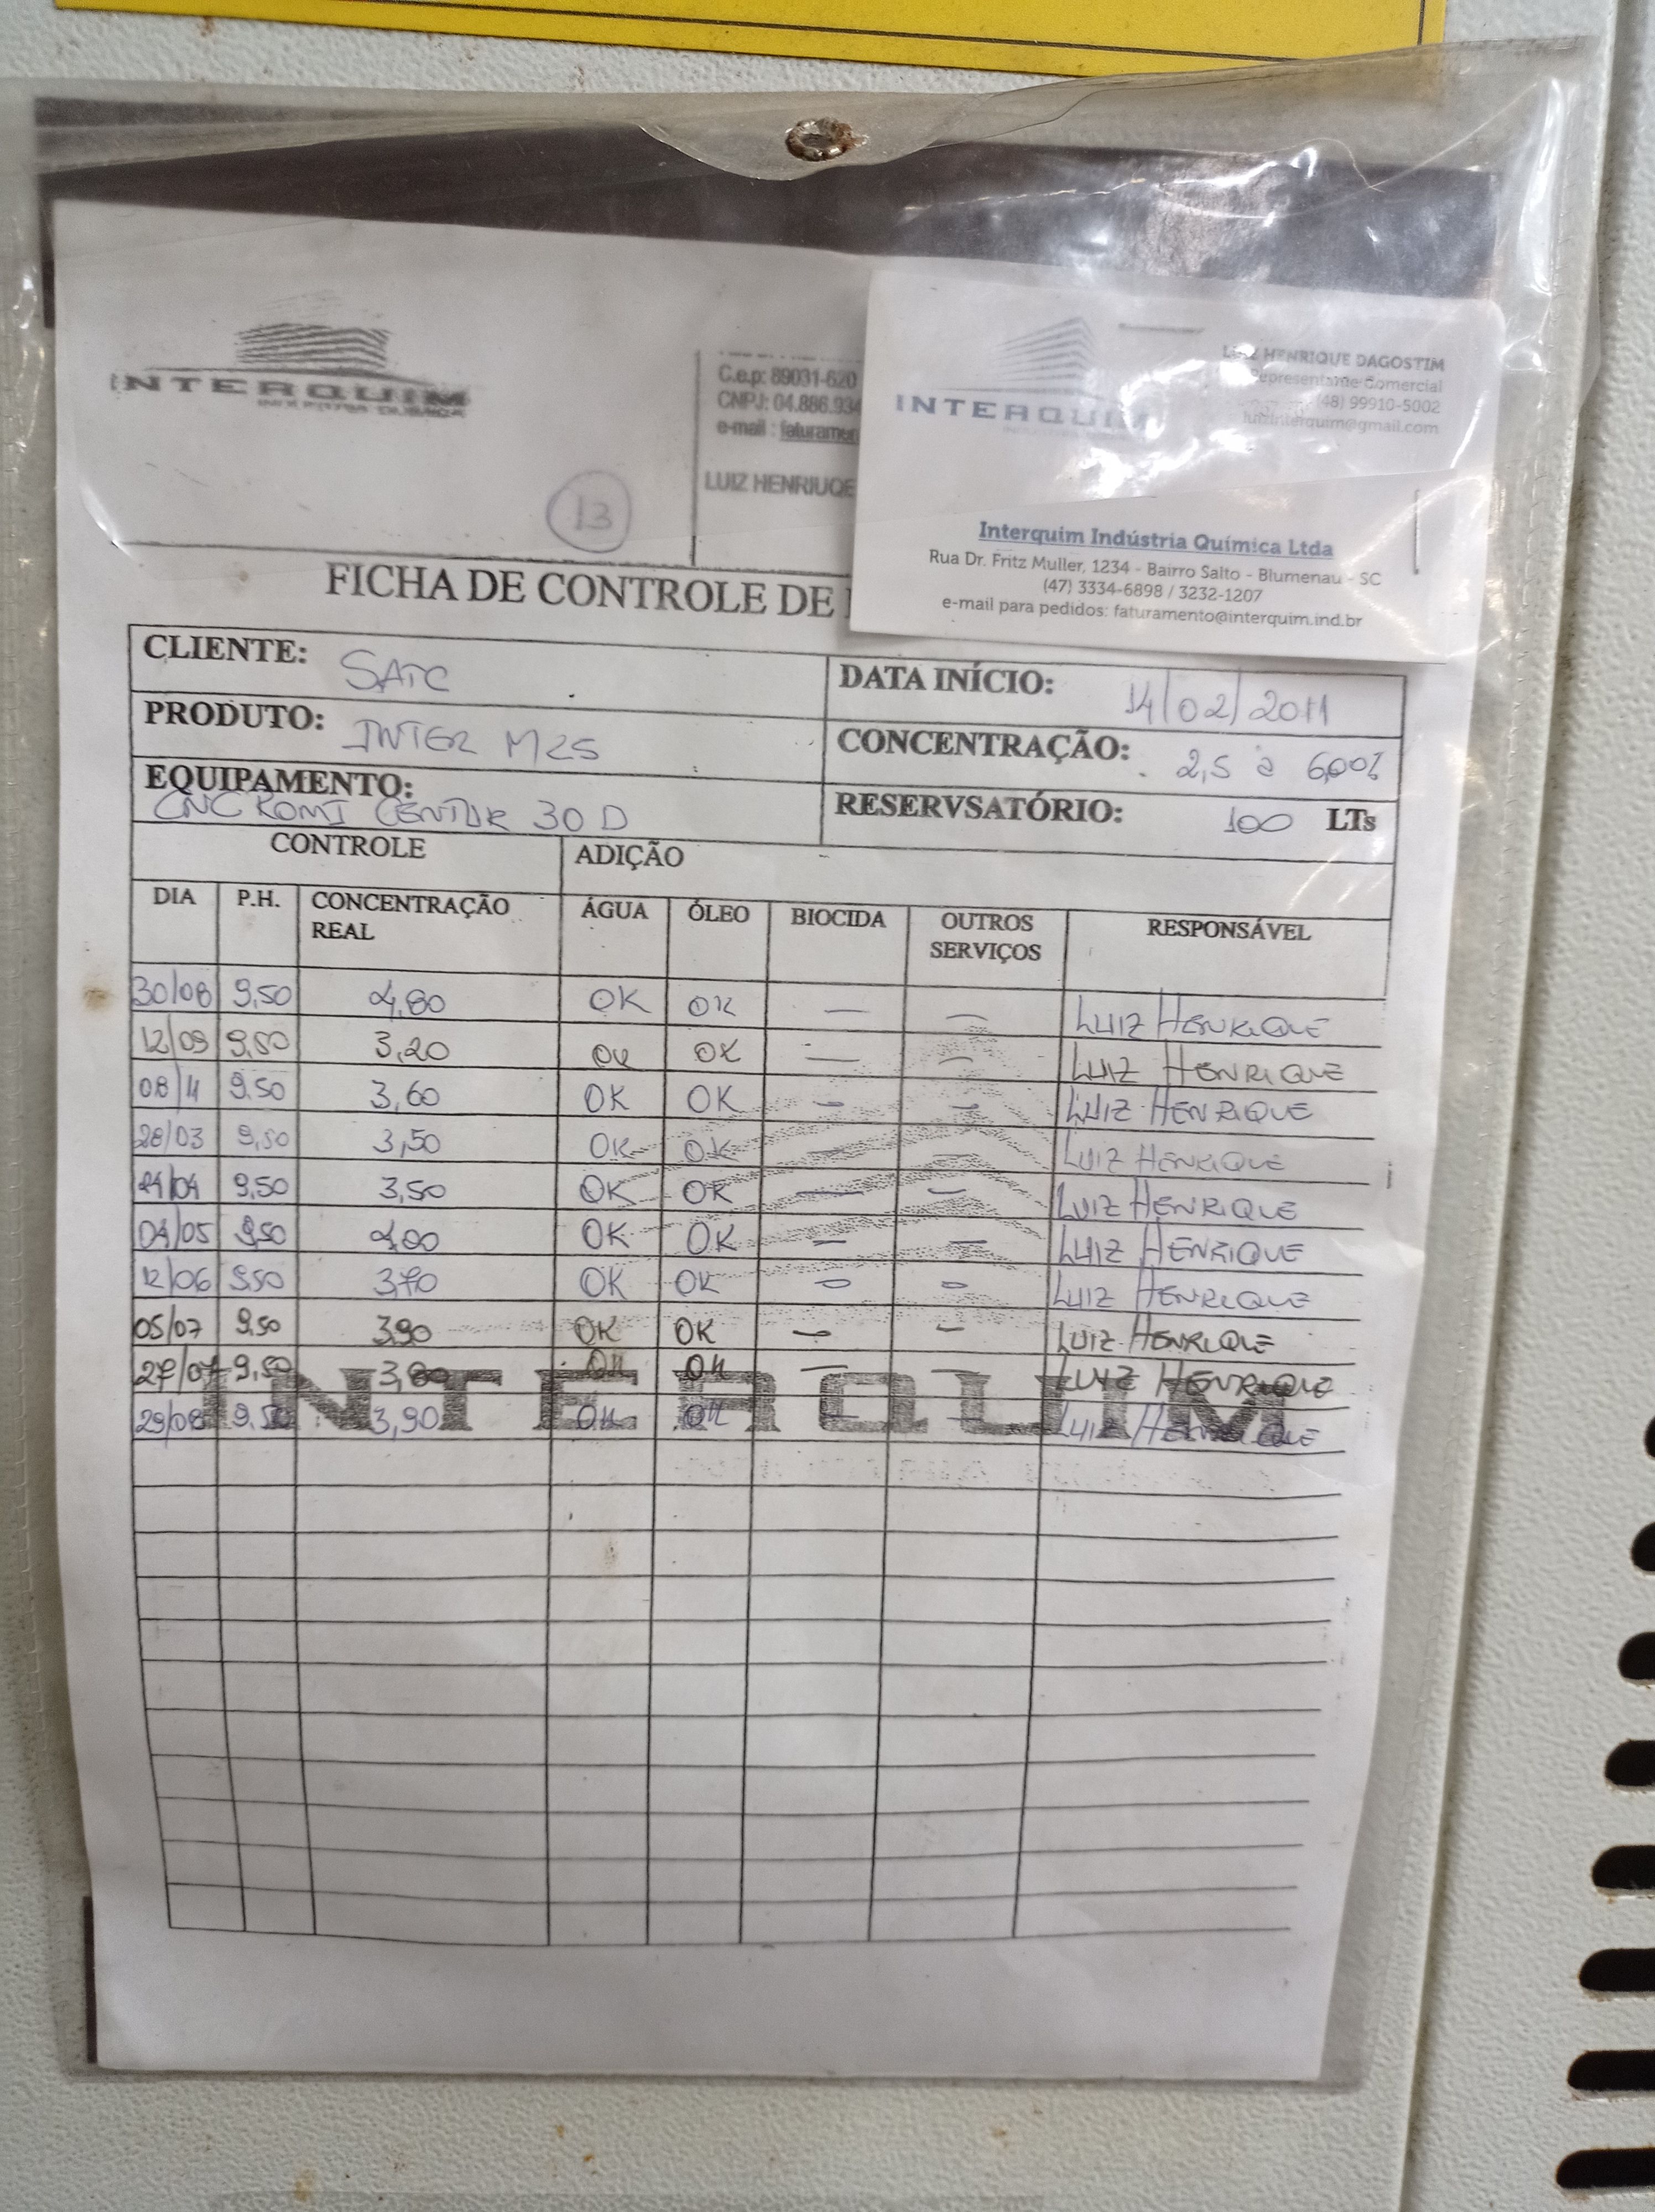 INTERQUIM
INDÚSTRIA QUÍMICA
13
C.e.p: 89031-620
CNPJ: 04.886.934
e-mail : faturamen
LUIZ HENRIUQE
INTERQUIM
LUIZ HENRIQUE DAGOSTIM
Representante Comercial
(48) 99910-5002
luizinterquim@gmail.com
Interquim Indústria Química Ltda
Rua Dr. Fritz Muller, 1234 - Bairro Salto - Blumenau - SC
(47) 3334-6898 / 3232-1207
e-mail para pedidos: faturamento@interquim.ind.br
FICHA DE CONTROLE DE
CLIENTE: SATC DATA INÍCIO: 14/02/2011
PRODUTO: INTER M25 CONCENTRAÇÃO: 2,5 a 6,00%
EQUIPAMENTO: CNC ROMI CENTUR 30 D RESERVSATÓRIO: 100 LTs
CONTROLE ADIÇÃO
DIA P.H. CONCENTRAÇÃO REAL ÁGUA ÓLEO BIOCIDA OUTROS SERVIÇOS RESPONSÁVEL
30/08 9,50 4,80 OK OK — — LUIZ HENRIQUE
12/09 9,50 3,20 OK OK — — LUIZ HENRIQUE
08/11 9.50 3,60 OK OK — — LUIZ HENRIQUE
28/03 9,50 3,50 OK OK — — LUIZ HENRIQUE
9.50 3,50 OK OK — — LUIZ HENRIQUE
04/05 9,50 OK OK — — LUIZ HENRIQUE
12/06 9.50 3,70 OK OK — — LUIZ HENRIQUE
05/07 9.50 3,90 OK OK — — LUIZ HENRIQUE
27/07 9,50 3,80 OK OK — — LUIZ HENRIQUE
29/08 9.50 3,90 OK OK — — LUIZ HENRIQUE
INTERQUIM